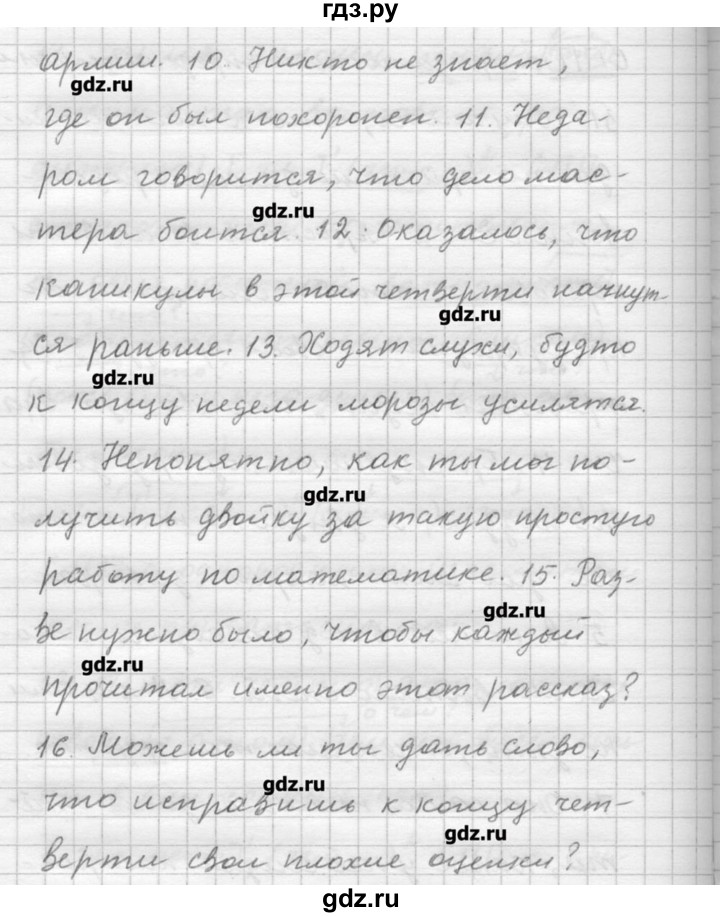 гдз.ру
армии. 10. Никто не знает,
gdz.ru
где он был похоронен. 11. Неда-
ром говорится, что дело мас-
gdz.ru
тера боится. 12. Оказалось, что
каникулы в этой четверти начнут-
gdz.ru
ся раньше. 13. Ходят слухи, будто
gdz.ru
к концу недели морозы усилятся.
14. Непонятно, как ты мог по-
gdz.ru
лучить двойку за такую простую
работу по математике. 15. Раз-
gdz.ru
ве нужно было, чтобы каждый
gdz.ru
прочитал именно этот рассказ?
16. Можешь ли ты дать слово,
gdz.ru
что исправишь к концу чет-
gdz.ru
верти свои плохие оценки?
gdz.ru